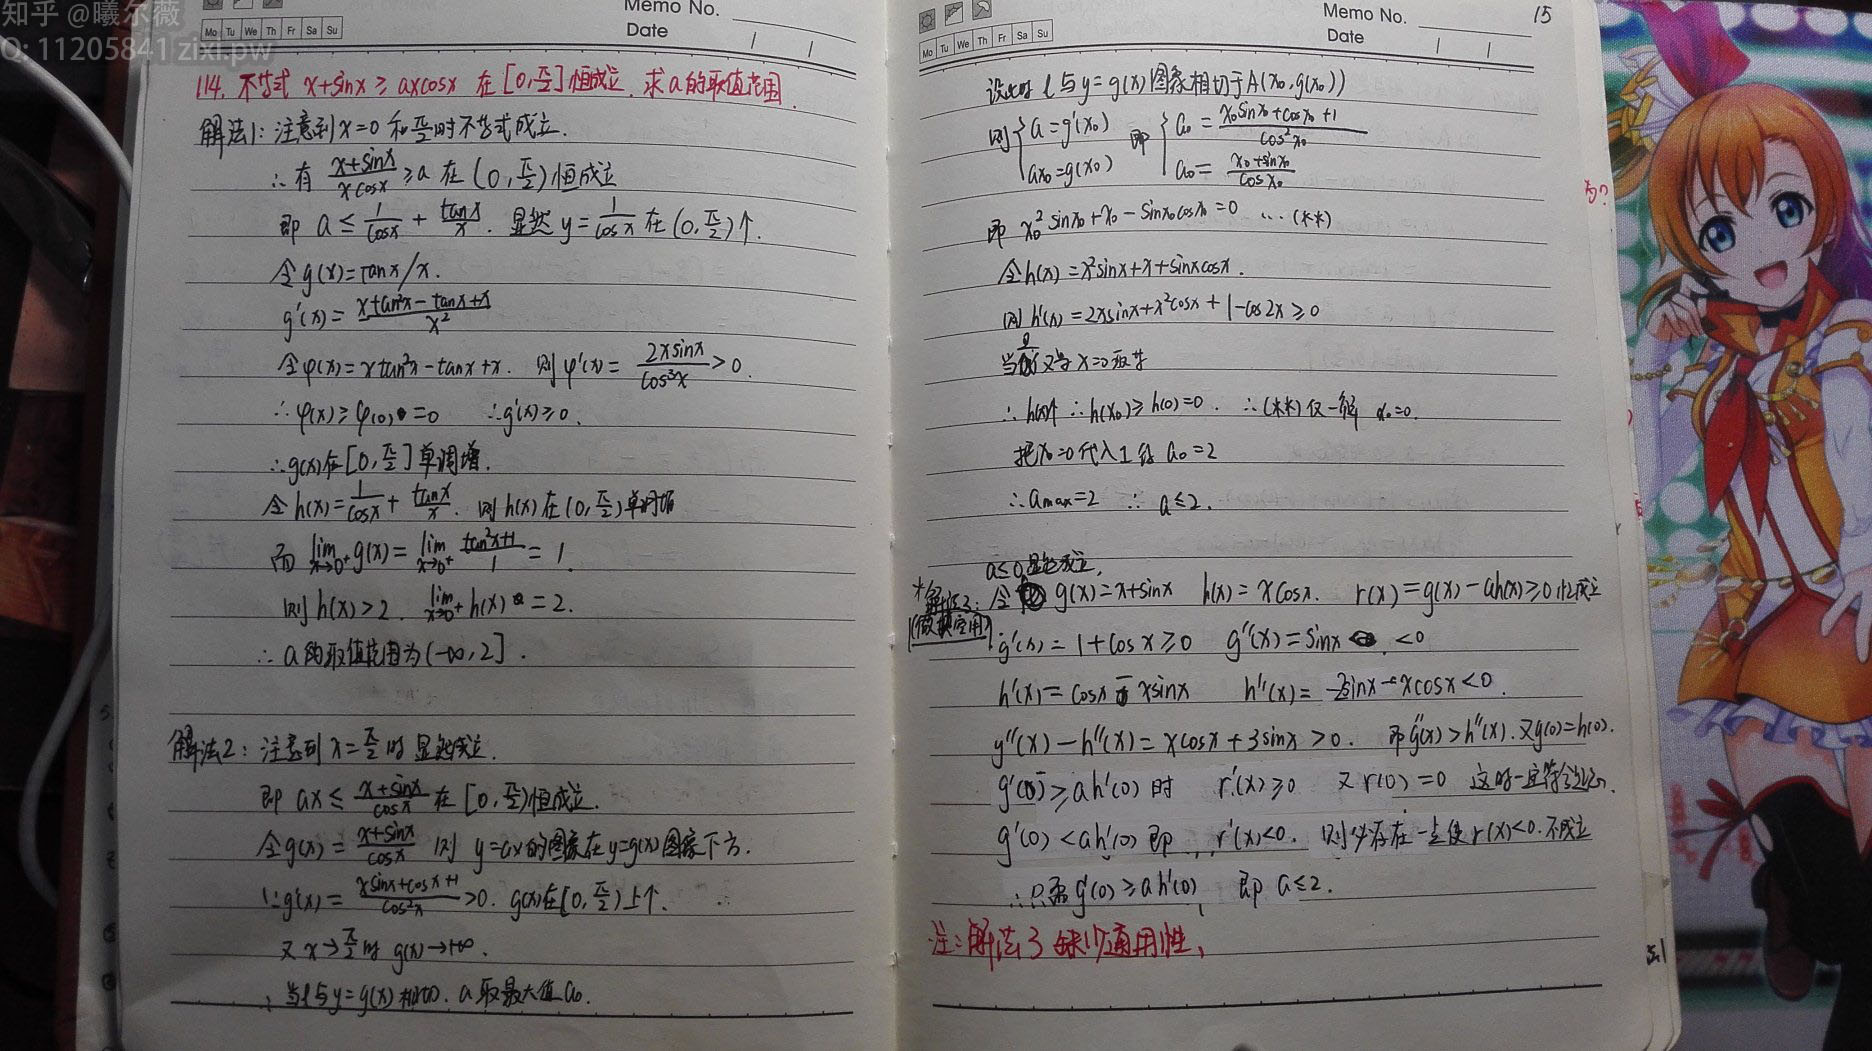 知乎 @曦尔薇
Q: 11205841 zixi.pw
Memo No.
Mo Tu We Th Fr Sa Su
Date / /
114. 不等式 x+sinx ≥ axcosx 在 [0, π/2] 恒成立, 求a的取值范围.
解法1: 注意到 x=0 和 π/2 时不等式成立.
∴有 (x+sinx)/(xcosx) ≥ a 在 (0, π/2) 恒成立
即 a ≤ 1/cosx + tanx/x. 显然 y = 1/cosx 在 (0, π/2) ↑.
令 g(x)=tanx/x.
g'(x) = (xtan²x - tanx + x)/x²
令 φ(x)=xtan²x-tanx+x. 则 φ'(x) = 2xsinx/cos³x > 0.
∴ φ(x) ≥ φ(0) =0 ∴g'(x) ≥ 0.
∴g(x)在[0, π/2]单调增.
令 h(x)= 1/cosx + tanx/x. 则 h(x) 在 (0, π/2) 单调增
而 lim x→0⁺ g(x) = lim x→0⁺ (tan²x+1)/1 = 1.
则 h(x) > 2. lim x→0⁺ h(x) = 2.
∴ a的取值范围为 (-∞, 2].
解法2: 注意到 x= π/2 时 显然成立.
即 ax ≤ (x+sinx)/cosx 在 [0, π/2)恒成立.
令g(x) = (x+sinx)/cosx 则 y=ax的图象在y=g(x)图象下方.
∵g'(x) = (xsinx+cosx+1)/cos²x > 0. g(x)在[0, π/2)上↑.
又 x→π/2 时 g(x)→+∞.
∴ 当l与y=g(x)相切. a取最大值a₀.
Memo No.
15
Mo Tu We Th Fr Sa Su
Date / /
设此时 l 与 y=g(x)图象相切于A(x₀, g(x₀))
则 { a=g'(x₀) 即 { a₀ = (x₀sinx₀+cosx₀+1)/cos²x₀
ax₀=g(x₀) a₀ = (x₀+sinx₀)/cosx₀
即 x₀²sinx₀+x₀-sinx₀cosx₀=0 … (**)
令h(x)=x²sinx+x+sinxcosx.
则 h'(x)=2xsinx+x²cosx+1-cos2x ≥ 0
当且仅当 x=0取等
∴ h(x)↑ ∴h(x₀) ≥ h(0)=0. ∴(**)仅一解 x₀=0.
把x₀=0代入1得 a₀=2
∴a max=2 ∴ a≤2.
a≤0显然成立.
解法3: 令 g(x)=x+sinx h(x)=xcosx. r(x)=g(x)-ah(x)≥0恒成立
g'(x)=1+cosx≥0 g''(x)=sinx <0
h'(x)=cosx-xsinx h''(x)=-2sinx-xcosx<0.
g''(x)-h''(x)=xcosx+3sinx>0. 即g''(x)>h''(x). 又g(0)=h(0).
g'(0)≥ah'(0)时 r'(x)≥0 又 r(0)=0 这时一定符合
g'(0)<ah'(0)即 r'(x)<0. 则必存在一点使r(x)<0. 不成立
∴只需g'(0)≥ah'(0) 即 a≤2.
注: 解法3缺少通用性.